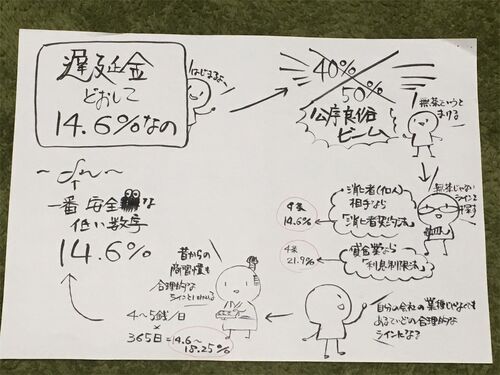 遅延金
どおして
14.6%なの
はじまるよ〜
40%
50%
公序良俗
ビーム
無茶いうと
まける
無茶じゃない
ラインを
消費者(個人)
相手なら
「消費者契約法」
9条
14.6%
貸金業なら
「利息制限法」
4条
21.9%
自分の会社の業種じゃなくても
あるていどの合理的な
ラインだな?
昔からの
商習慣も
合理的な
ラインといわれる
4〜5銭/日
×
365日=14.6〜
18.25%
一番安全な
低い数字
14.6%